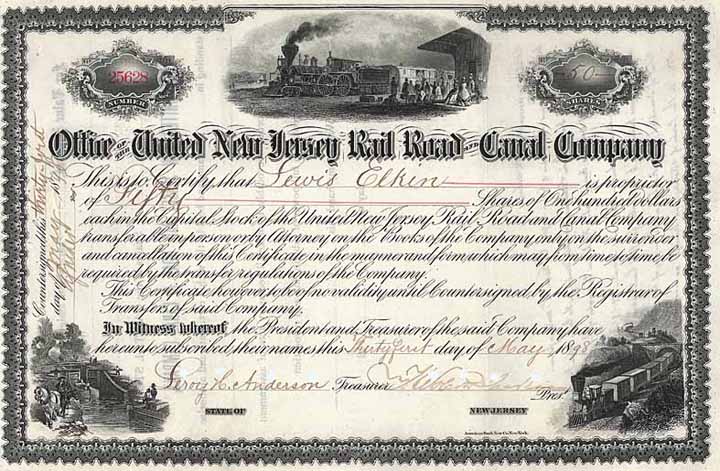 25628
NUMBER
50
SHARES
Office OF THE United New Jersey Rail Road AND Canal Company
This is to Certify, that Lewis Elkin is proprietor
of Fifty Shares of One hundred dollars
each in the Capital Stock of the United New Jersey Rail Road and Canal Company
transferable in person or by Attorney on the Books of the Company only on the surrender
and cancellation of this Certificate in the manner and form which may from time to time be
required by the transfer regulations of the Company.
This Certificate however to be of no validity until Countersigned by the Registrar of
Transfers of said Company.
In Witness whereof the President and Treasurer of the said Company have
hereunto subscribed their names this Thirty first day of May 1898
Leroy H. Anderson Treasurer Prest.
STATE OF NEW JERSEY
American Bank Note Co. New York.
Countersigned this thirty first
day of May 189